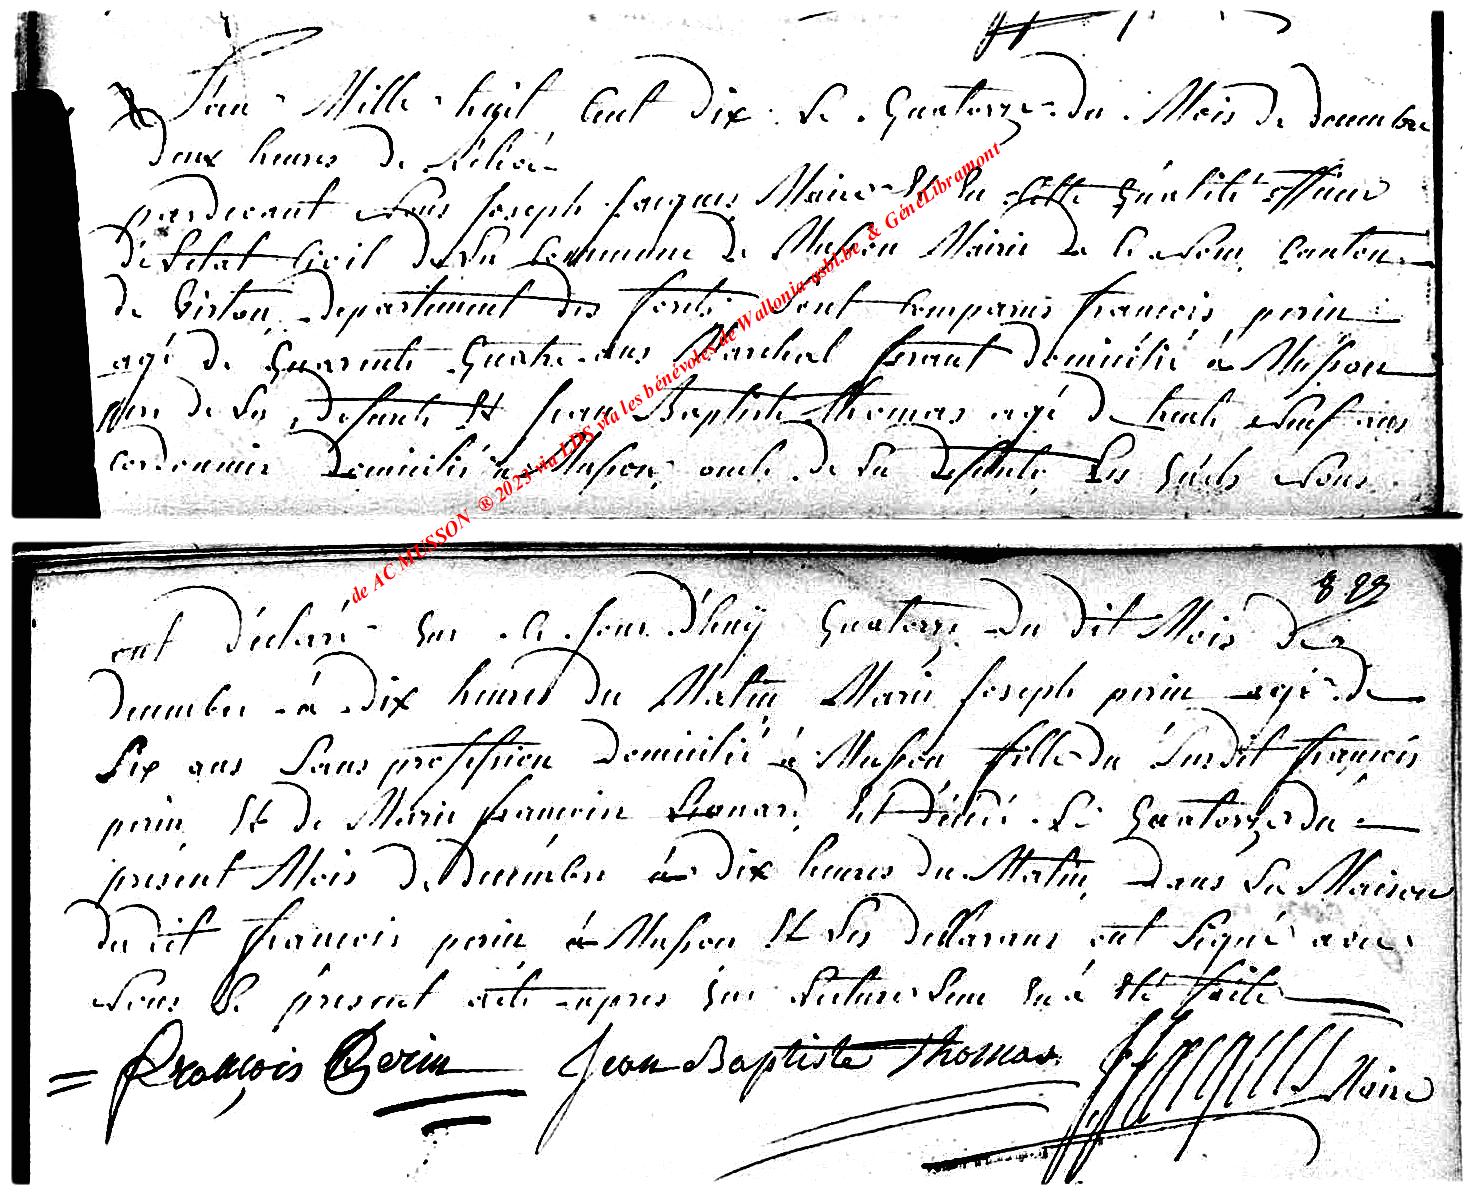 L'an Mille huit Cent dix Le Quatorze du Mois de decembre
deux heures de Relevé
pardevant Nous Joseph Jacques Maire Et En Cette Qualité officier
de L'etat Civil de La Commune de Musson Mairie de ce Nom, Canton
de Virton, departement des forets sont Comparus francois perin
agé de Quarente Quatre ans Marchal ferant domicilié à Musson
pere de La defunte Et Jean Baptiste Thomas agé de trente Neuf ans
cordonnier domicilié à Musson, oncle de La defunte, Les Quels Nous
de AC MUSSON ® 2023 via LDS via les bénévoles de Wallonia-asbl.be & GénéLibramont
829
ont déclaré que ce Jour d'huÿ Quatorze du dit Mois de
decembre à dix heures du Matin Marie Joseph perin agé de
Six ans Sans profession domicilié à Musson fille du Susdit francois
perin Et de Marie francoise Et décédé Le Quatorze du
présent Mois de decembre à dix heures du Matin, dans La Maison
du dit francois perin à Musson Et Les dellarans ont Signé avec
Nous Le présent acte apres que Lecture Leur En a Eté faite
François Perin Jean Baptiste Thomas JJacques Maire